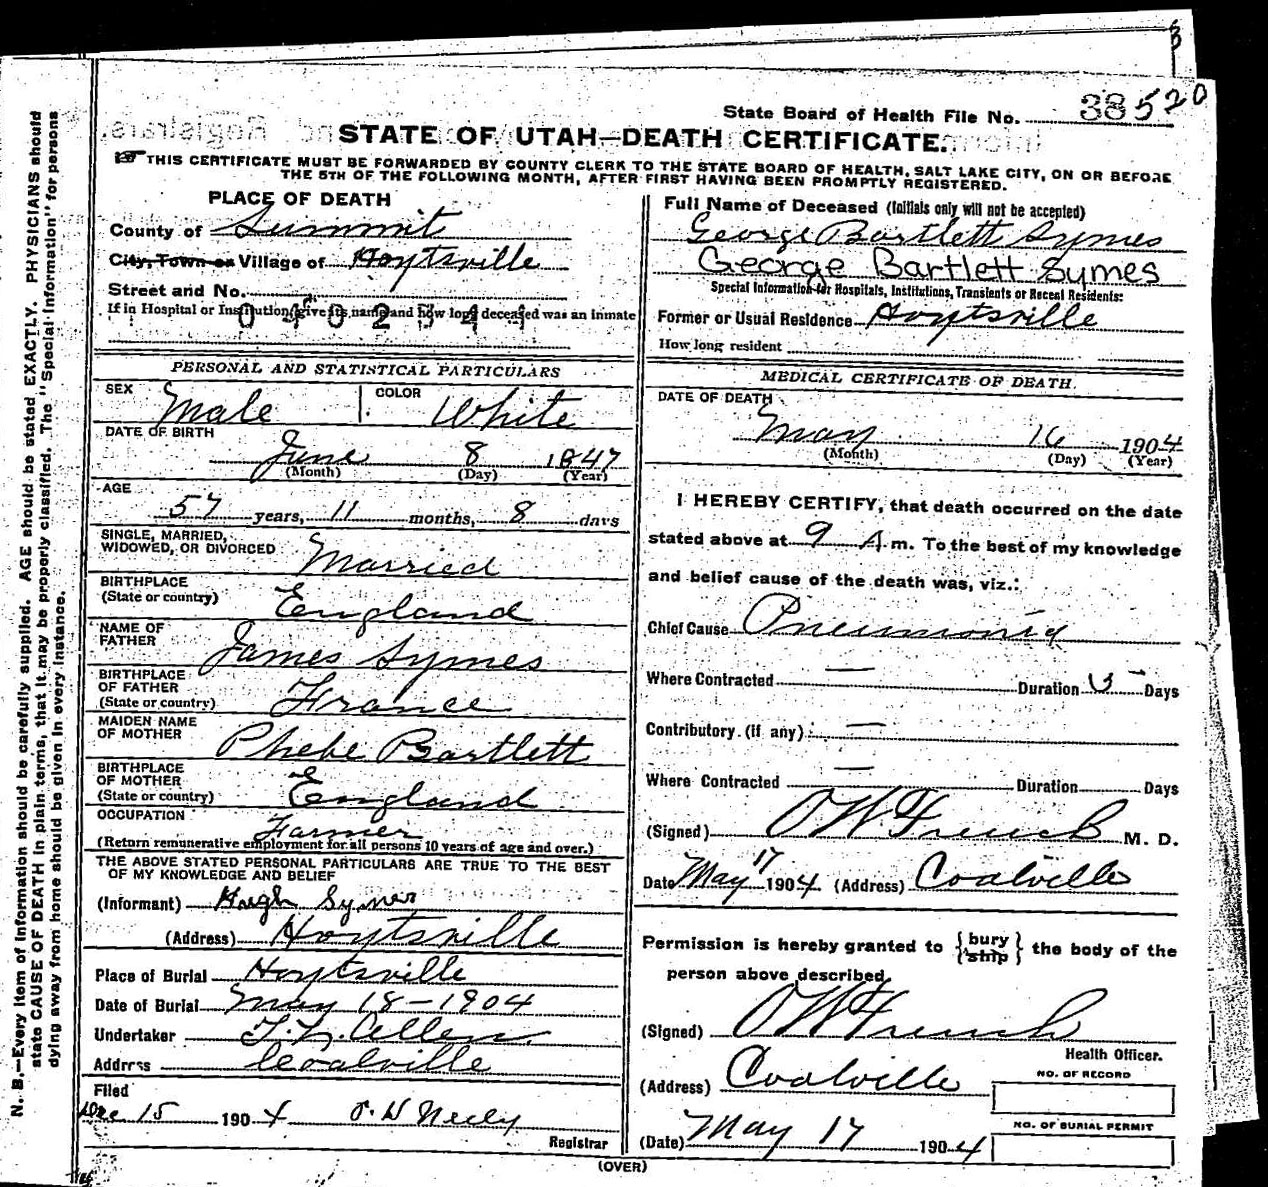 State Board of Health File No. 38520
STATE OF UTAH—DEATH CERTIFICATE.
THIS CERTIFICATE MUST BE FORWARDED BY COUNTY CLERK TO THE STATE BOARD OF HEALTH, SALT LAKE CITY, ON OR BEFORE
THE 5TH OF THE FOLLOWING MONTH, AFTER FIRST HAVING BEEN PROMPTLY REGISTERED.
PLACE OF DEATH
County of Summit
City, Town or Village of Hoytsville
Street and No.
If in Hospital or Institution, give its name and how long deceased was an inmate
0402544
Full Name of Deceased (Initials only will not be accepted)
George Bartlett Symes
George Bartlett Symes
Special Information for Hospitals, Institutions, Transients or Recent Residents:
Former or Usual Residence Hoytsville
How long resident
PERSONAL AND STATISTICAL PARTICULARS
SEX Male COLOR White
DATE OF BIRTH
June 8 1847
(Month) (Day) (Year)
AGE
57 years, 11 months, 8 days
SINGLE, MARRIED,
WIDOWED, OR DIVORCED Married
BIRTHPLACE
(State or country) England
NAME OF
FATHER James Symes
BIRTHPLACE
OF FATHER
(State or country) France
MAIDEN NAME
OF MOTHER Phebe Bartlett
BIRTHPLACE
OF MOTHER
(State or country) England
OCCUPATION
Farmer
(Return remunerative employment for all persons 10 years of age and over.)
THE ABOVE STATED PERSONAL PARTICULARS ARE TRUE TO THE BEST
OF MY KNOWLEDGE AND BELIEF
(Informant) Hugh Symes
(Address) Hoytsville
Place of Burial Hoytsville
Date of Burial May 18-1904
Undertaker Allen
Address Coalville
Filed
Dec 15 1904
Registrar
MEDICAL CERTIFICATE OF DEATH.
DATE OF DEATH
May 16 1904
(Month) (Day) (Year)
I HEREBY CERTIFY, that death occurred on the date
stated above at 9 A m. To the best of my knowledge
and belief cause of the death was, viz.:
Chief Cause Pneumonia
Where Contracted — Duration 5 Days
Contributory (if any) —
Where Contracted — Duration Days
(Signed) O W French M. D.
Date May 17 1904 (Address) Coalville
Permission is hereby granted to {bury ship} the body of the
person above described.
(Signed) O W French
Health Officer.
(Address) Coalville
NO. OF RECORD
(Date) May 17 1904
NO. OF BURIAL PERMIT
(OVER)
N. B.—Every item of information should be carefully supplied. AGE should be stated EXACTLY. PHYSICIANS should
state CAUSE OF DEATH in plain terms, that it may be properly classified. The "Special Information" for persons
dying away from home should be given in every instance.